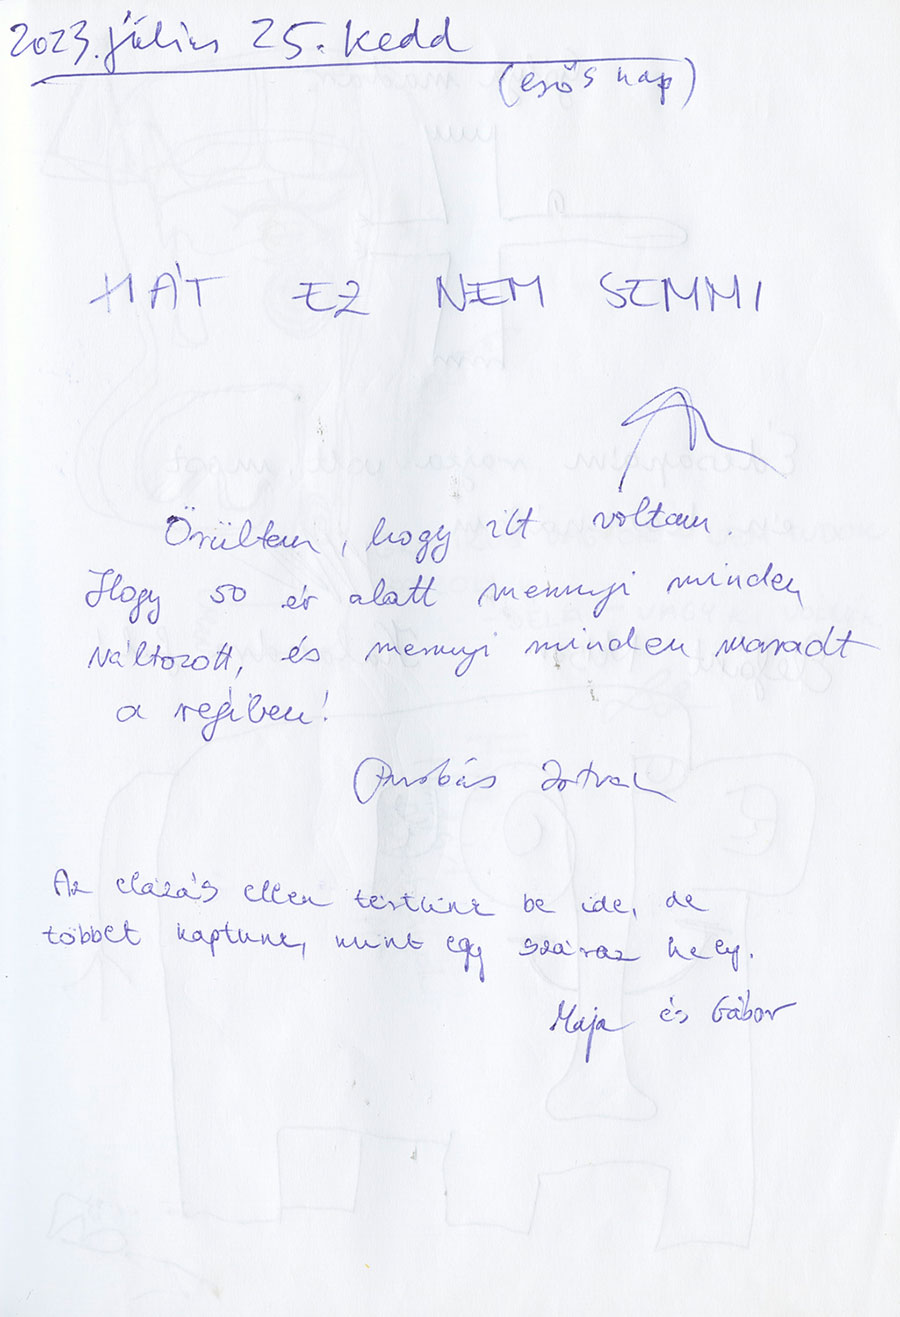 2023. július 25. kedd
(esős nap)
HÁT EZ NEM SEMMI
Örültem, hogy itt voltam.
Hogy 50 év alatt mennyi minden
változott, és mennyi minden maradt
a régiben!
Az elázás ellen tértünk be ide, de
többet kaptunk, mint egy száraz hely.
Maja és Gábor